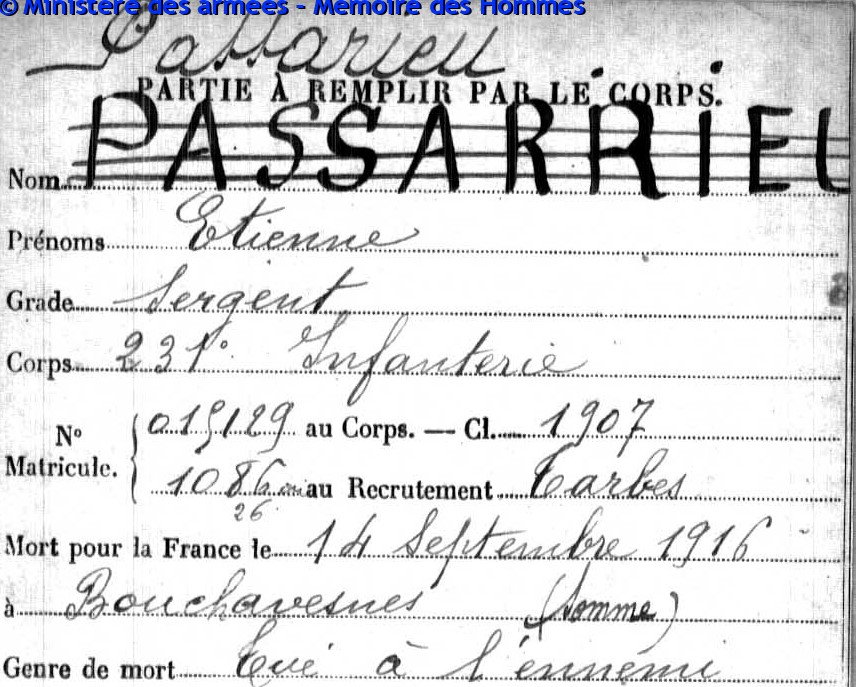 © Ministère des armées - Mémoire des Hommes
Passarieu
PARTIE À REMPLIR PAR LE CORPS.
Nom PASSARRIEU
Prénoms Etienne
Grade Sergent
Corps 231° Infanterie
N° 015129 au Corps. — Cl. 1907
Matricule. 1086 au Recrutement Tarbes
26
Mort pour la France le 14 Septembre 1916
à Bouchavesnes (Somme)
Genre de mort Tué à l'ennemi